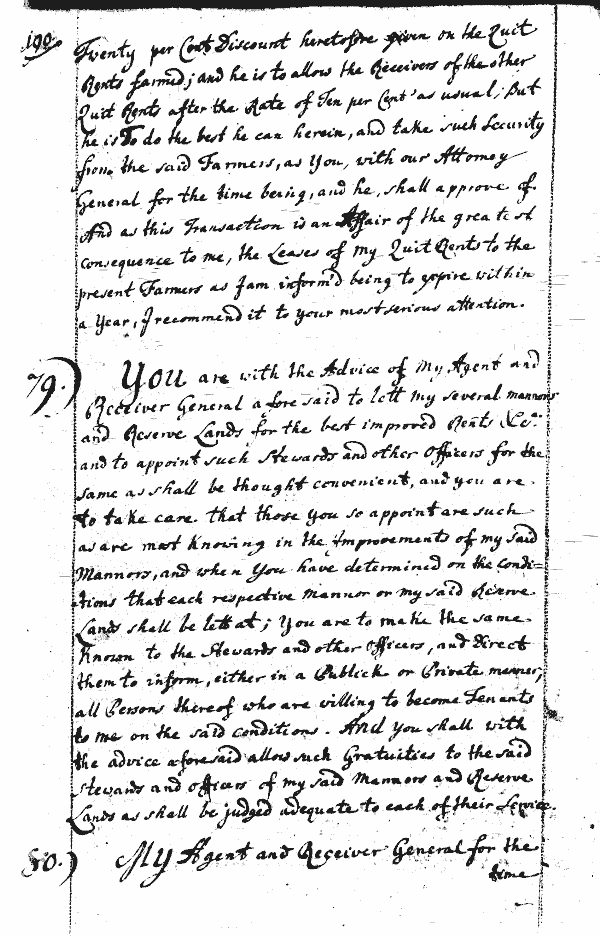 190
Twenty per Cent Discount heretofore given on the Quit
Rents farmed; and he is to allow the Receivers of the other
Quit Rents after the Rate of Ten per Cent as usual; But
he is To do the best he can herein, and take such Security
from the said Farmers, as You, with our Attorney
General for the time being, and he, shall approve of
And as this Transaction is an Affair of the greatest
consequence to me, the Leases of my Quit Rents to the
present Farmers as I am inform'd being to expire within
a Year, I recommend it to your most serious attention.
79.) You are with the Advice of My Agent and
Receiver General afore said to lett my several mannors
and Reserve Lands for the best improved Rents &c.
and to appoint such Stewards and other Officers for the
same as shall be thought convenient, and you are
to take care that those You so appoint are such
as are most Knowing in the Improvements of my said
Mannors, and when You have determined on the condi=
tions that each respective mannor or my said Reserve
Lands shall be lett at; You are to make the same
Known to the Stewards and other Officers, and direct
them to inform, either in a Publick or Private manner,
all Persons thereof who are willing to become Tenants
to me on the said conditions. And you shall with
the advice aforesaid allow such Gratuities to the said
Stewards and officers of my said Mannors and Reserve
Lands as shall be judged adequate to each of their Service.
80.) My Agent and Receiver General for the
time